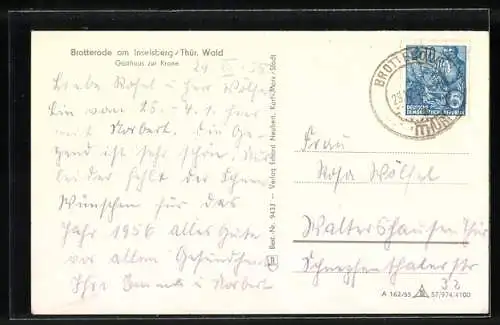 Brotterode am Inselsberg/Thür. Wald
Gasthaus zur Krone
Liebe Rosel u Herr Wölfel
Bin vom 25. - 4.1. hier
mit Norbert. Die Ge-
gend ist sehr schön. Nur
leider fehlt der Schnee
Wünschen für das
Jahr 1956 alles Gute
vor allem Gesundheit
Ihre u Norbert
Best.-Nr. 9437 – Verlag Erhard Neubert, Karl-Marx-Stadt
BROTTERODE
DEUTSCHE
DEMOKRATISCHE REPUBLIK
6
Frau
Rosa Wölfel
Waltershausen Thür
Schnepfenthaler Str
32
A 162/55 57/974/4100